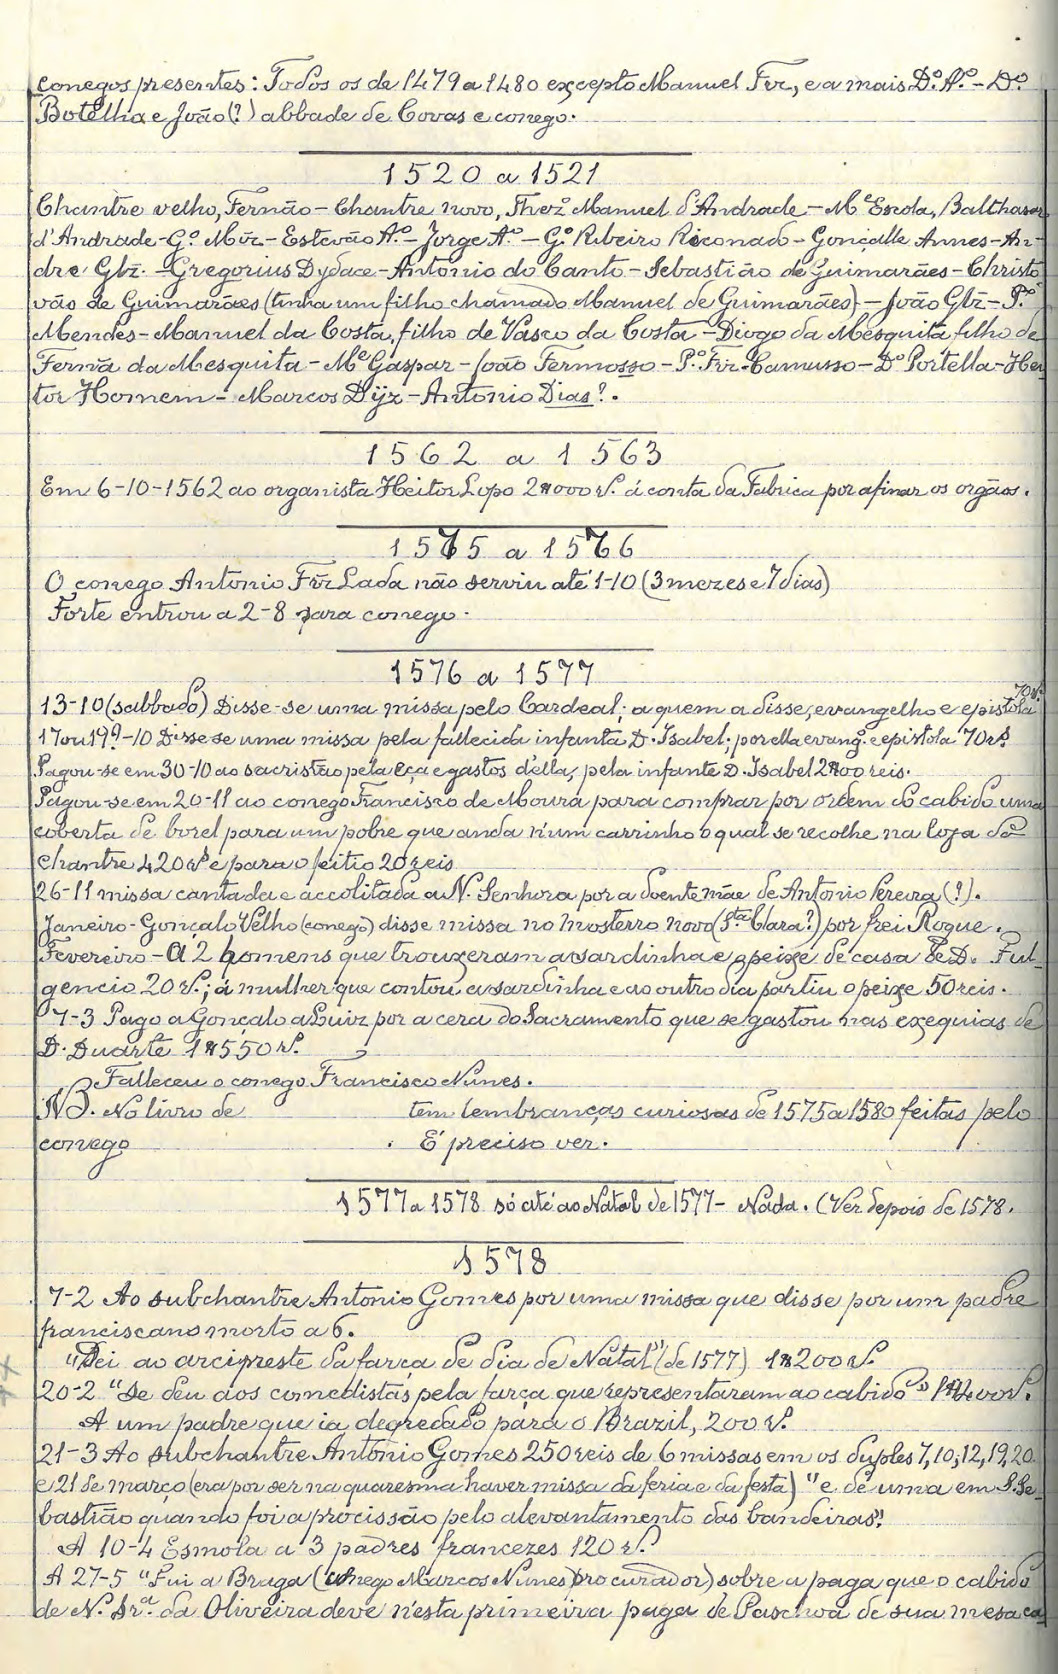 conegos presentes: Todos os de 1479 a 1480 excepto Manuel Frz, e a mais D.º A.º - D.º
Botelha e João (?) abbade de Covas e conego.
1520 a 1521
Chantre velho, Fernão - Chantre novo, Thez.º Manuel d'Andrade - M.e Escola, Balthasar
d'Andrade - G.º Míz - Estevão A.º - Jorge A.º - G.º Ribeiro Riconado - Gonçalle Annes - An-
dre Glz. - Gregorius Dydace - Antonio do Canto - Sebastião de Guimarães - Christo
vão de Guimarães (tinha um filho chamado Manuel de Guimarães) - João Glz - P.º
Mendes - Manuel da Costa, filho de Vasco da Costa - Diogo da Mesquita filho de
Fernã da Mesquita - M.e Gaspar - João Fermosso - P.º Frz. Camusso - D.º Portella - Hei
tor Homem - Marcos Dyz - Antonio Dias?.
1562 a 1563
Em 6-10-1562 ao organista Heitor Lopo 2$000 rs. á conta da Fabrica por afinar os orgãos.
1565 a 1566
O conego Antonio Frz Lada não serviu até 1-10 (3 mezes e 7 dias)
Forte entrou a 2-8 para conego.
1576 a 1577
13-10 (sabbado) Disse-se uma missa pelo Cardeal; a quem a disse, evangelho e epistola 70 rs.
17 ou 19?-10 Disse-se uma missa pela fallecida infanta D. Isabel; por ella evang.º e epistola 70 rs.
Pagou-se em 30-10 ao sacristão pela Eça e gastos d'ella, pela infante D. Isabel 2$00 reis.
Pagou-se em 20-11 ao conego Francisco de Moura para comprar por ordem do cabido uma
coberta de borel para um pobre que anda n'um carrinho o qual se recolhe na loja do
chantre 420 rs e para o feitio 20 reis
26-11 missa cantada e accolitada a N. Senhora por a doente mãe de Antonio Pereira (?).
Janeiro - Gonçalo Velho (conego) disse missa no mosterro novo (S.ta Clara?) por frei Roque.
Fevereiro - A 2 homens que trouxeram a sardinha e o peixe de casa de D. Ful-
gencio 20 rs.; á mulher que contou a sardinha e ao outro dia partiu o peixe 50 reis.
7-3 Pago a Gonçalo a Luiz por a cera do Sacramento que se gastou nas exequias de
D. Duarte 1$550 rs.
Falleceu o conego Francisco Nunes.
NB. No livro de tem lembranças curiosas de 1575 a 1580 feitas pelo
conego . É preciso ver.
1577 a 1578 só até ao Natal de 1577 - Nada. (Ver depois de 1578.
1578
7-2 Ao subchantre Antonio Gomes por uma missa que disse por um padre
franciscano morto a 6.
"Dei ao arcipreste da farça de dia de Natal" (de 1577) 1$200 rs.
20-2 "Se deu aos comedistas pela farça que representaram ao cabido" 1$400 rs.
A um padre que ia degredado para o Brazil, 200 rs.
21-3 Ao subchantre Antonio Gomes 250 reis de 6 missas em os duples 7, 10, 12, 19, 20
e 21 de março (era por ser na quaresma haver missa da feria e da festa) "e de uma em S. Se-
bastião quando foi a procissão pelo alevantamento das bandeiras".
A 10-4 Esmola a 3 padres francezes 120 rs.
A 27-5 "Fui a Braga (conego Marcos Nunes procurador) sobre a paga que o cabido
de N. Sr.ª da Oliveira deve n'esta primeira paga de Paschoa de sua mesa ca